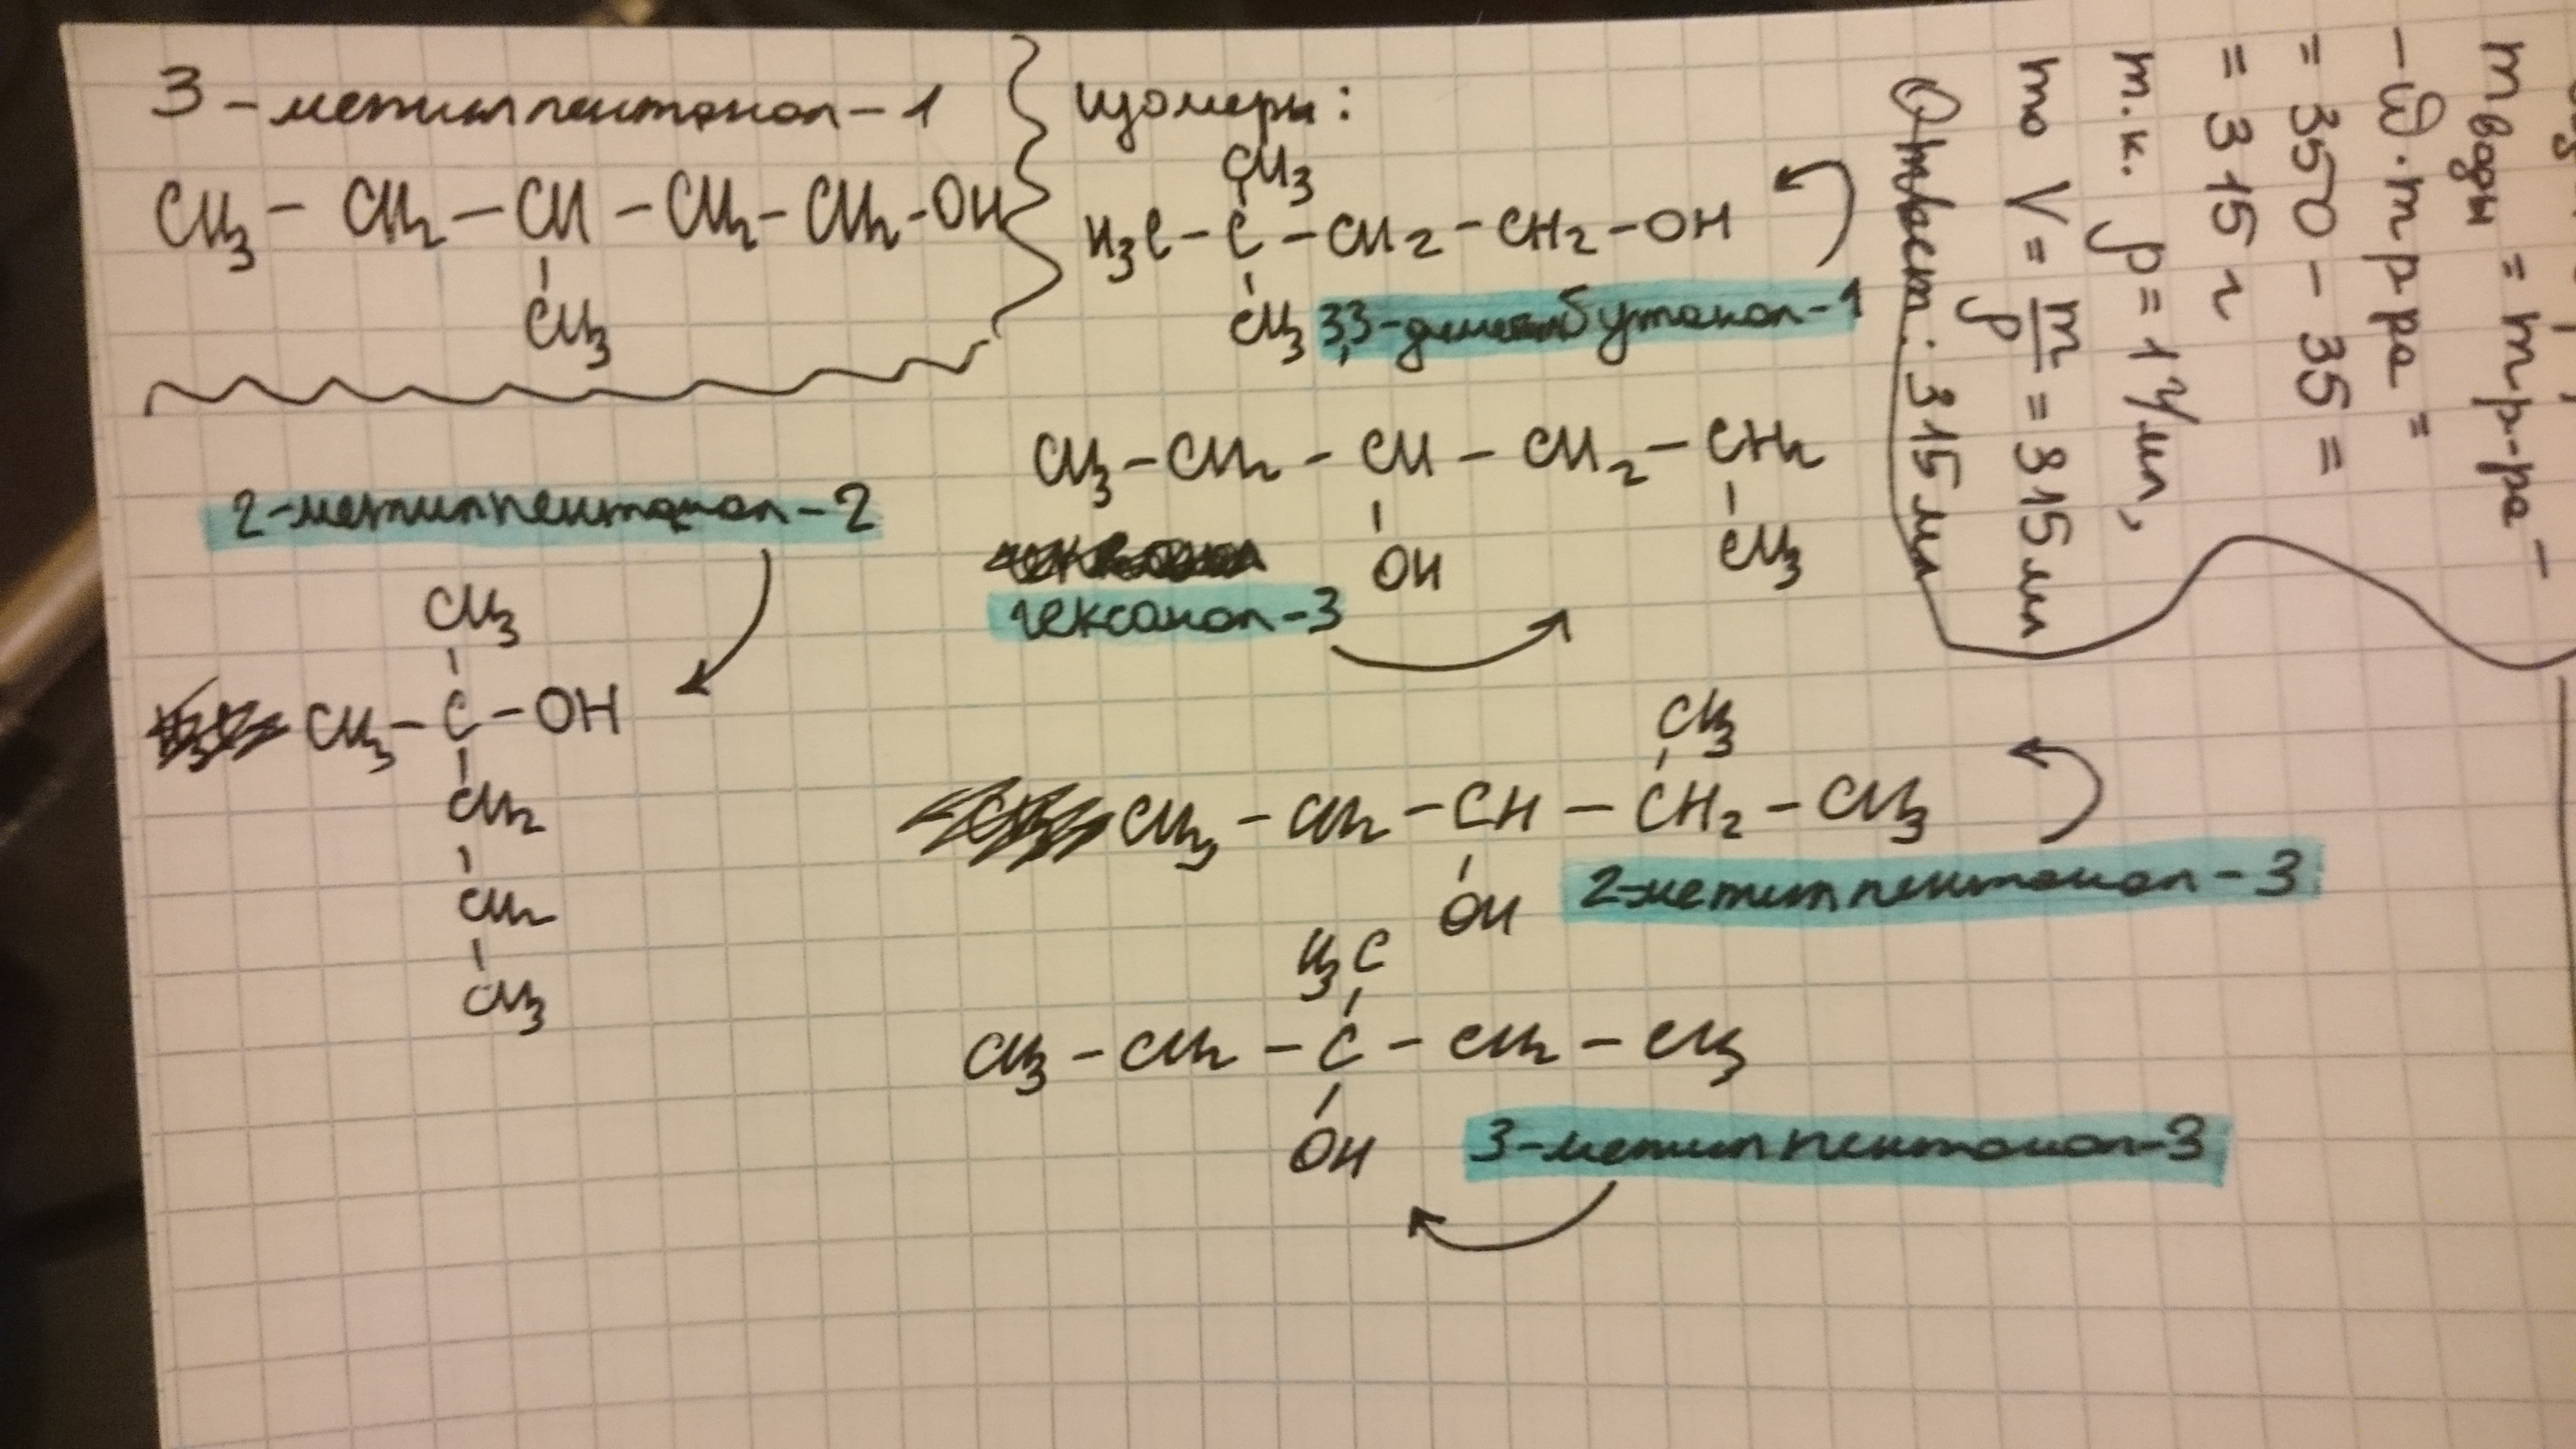 3-метилпентанол-1
CH3 - CH2 - CH - CH2 - CH2 - OH
CH3
Изомеры:
CH3
H3C - C - CH2 - CH2 - OH
CH3
3,3-диметилбутанол-1
CH3 - CH2 - CH - CH2 - CH2
OH
CH3
гексанол-3
2-метилпентанол-2
CH3
CH3 - C - OH
CH2
CH2
CH3
CH3
CH3 - CH2 - CH - CH2 - CH3
OH
2-метилпентанол-3
H3C
CH3 - CH2 - C - CH2 - CH3
OH
3-метилпентанол-3
m воды = m р-ра -
- ω · m р ра =
= 350 - 35 =
= 315 г
т.к. ρ = 1 г/мл,
то V = m/ρ = 315 мл
Ответ: 315 мл